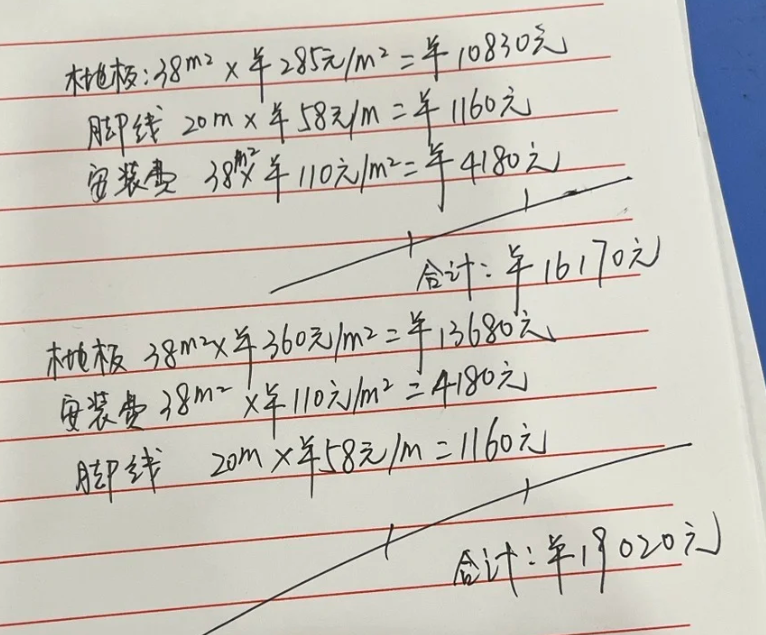 木地板:38m² × ¥285元/m² = ¥10830元
脚线 20m × ¥58元/m = ¥1160元
安装费 38m² × ¥110元/m² = ¥4180元
合计: ¥16170元
木地板 38m² × ¥360元/m² = ¥13680元
安装费 38m² × ¥110元/m² = 4180元
脚线 20m × ¥58元/m = 1160元
合计: ¥19020元